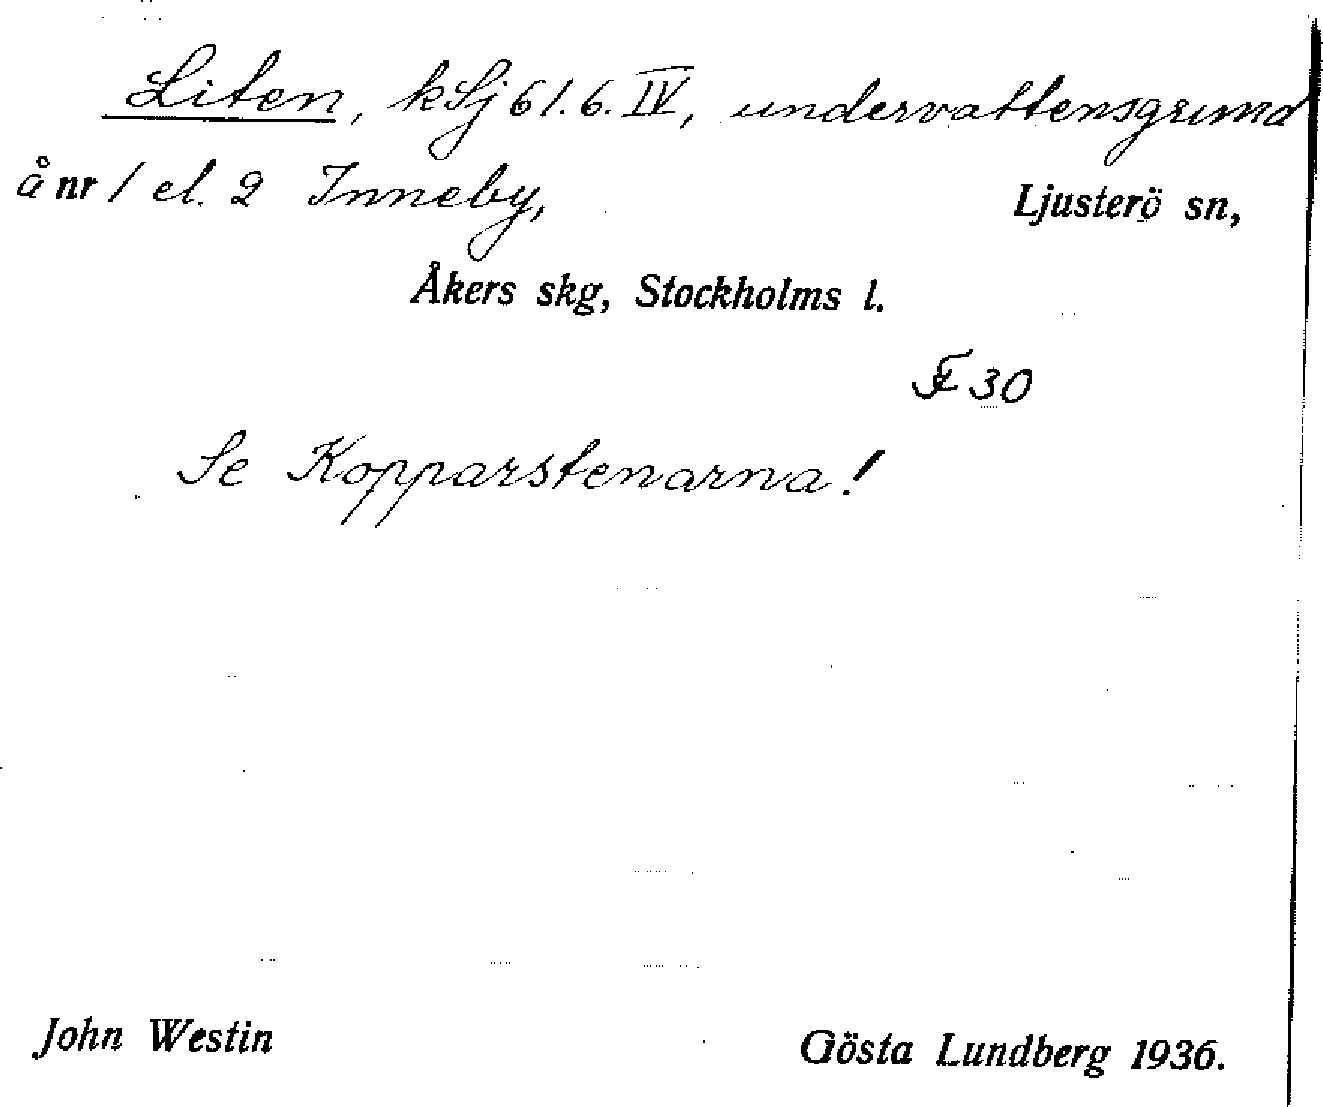 Liten, kSj 61.6.IV, undervattensgrund
å nr 1 el. 2 Inneby, Ljusterö sn,
Åkers skg, Stockholms l.
F 30
Se Kopparstenarna!
John Westin Gösta Lundberg 1936.